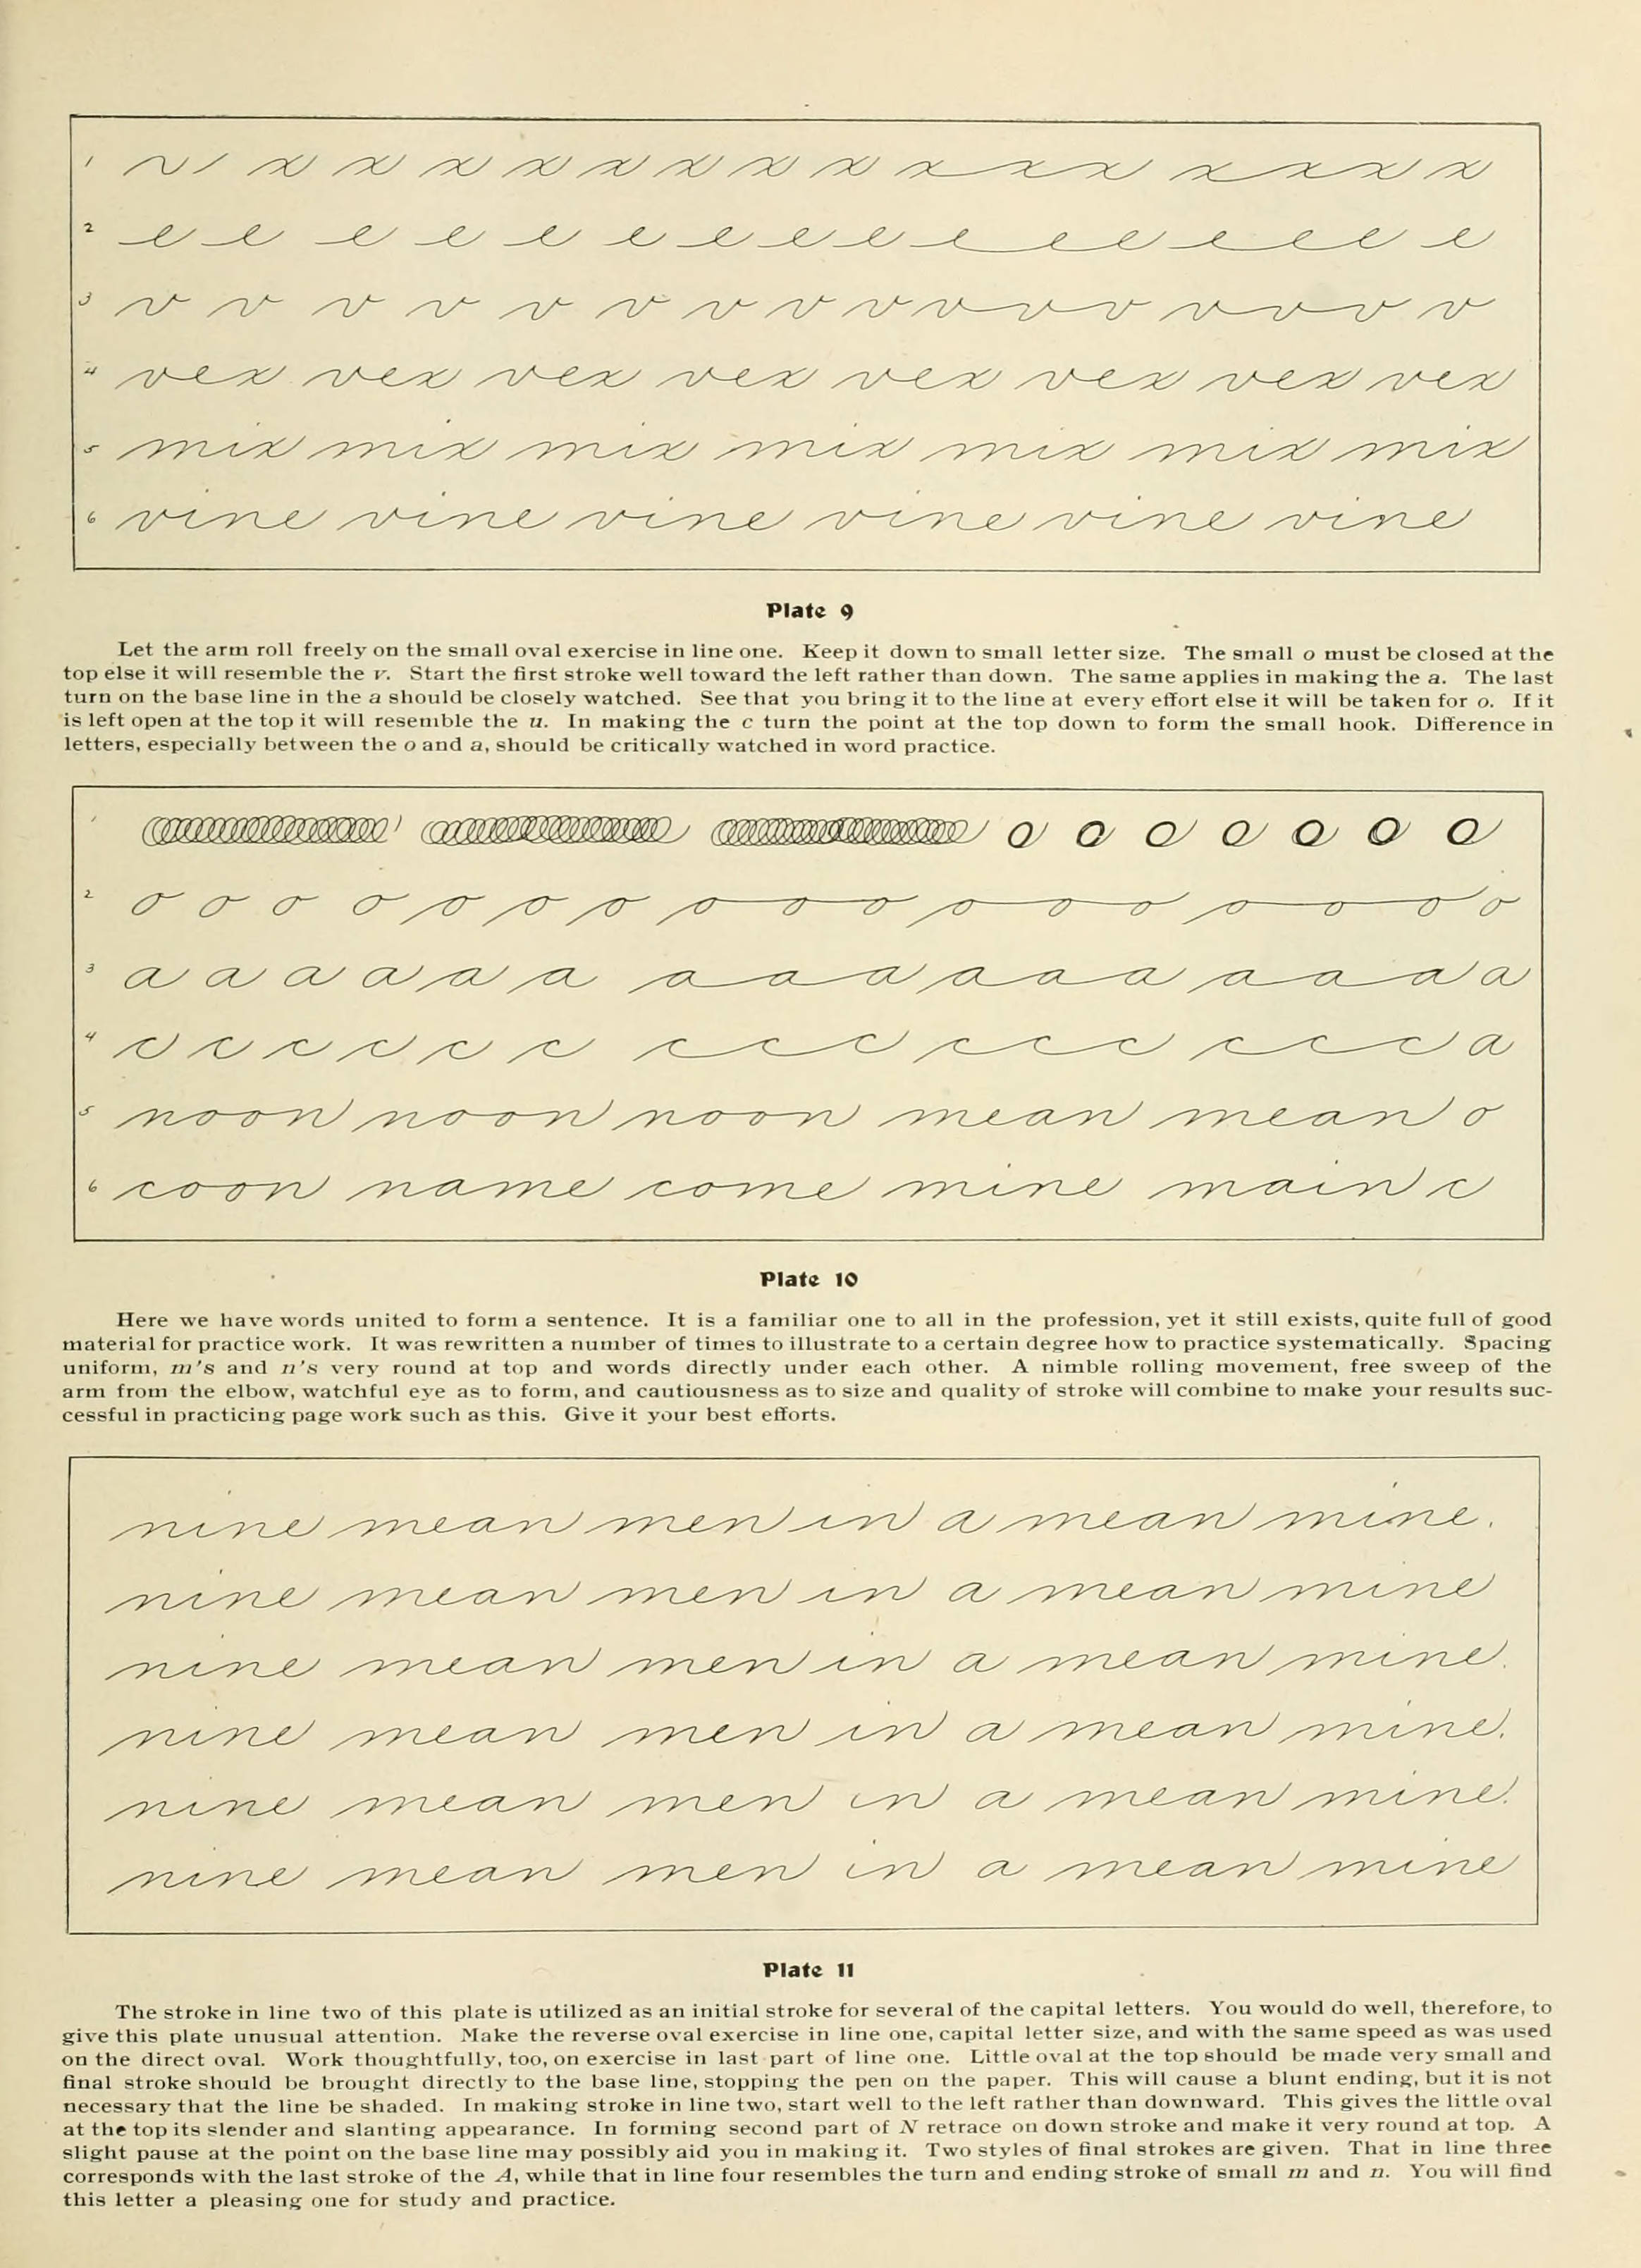 1 x x x x x x x x x x x x x x x
2 e e e e e e e e e e e e e e e e
3 v v v v v v v v v v v v v v v v
4 vex vex vex vex vex vex vex vex
5 mix mix mix mix mix mix mix
6 vine vine vine vine vine vine
Plate 9
Let the arm roll freely on the small oval exercise in line one. Keep it down to small letter size. The small o must be closed at the
top else it will resemble the v. Start the first stroke well toward the left rather than down. The same applies in making the a. The last
turn on the base line in the a should be closely watched. See that you bring it to the line at every effort else it will be taken for o. If it
is left open at the top it will resemble the u. In making the c turn the point at the top down to form the small hook. Difference in
letters, especially between the o and a, should be critically watched in word practice.
1 o o o o o o o
2 o o o o o o o o o o o o o o o o o
3 a a a a a a a a a a a a a a a a
4 c c c c c c c c c c c c c c c a
5 noon noon noon mean mean o
6 coon name come mine main c
Plate 10
Here we have words united to form a sentence. It is a familiar one to all in the profession, yet it still exists, quite full of good
material for practice work. It was rewritten a number of times to illustrate to a certain degree how to practice systematically. Spacing
uniform, m's and n's very round at top and words directly under each other. A nimble rolling movement, free sweep of the
arm from the elbow, watchful eye as to form, and cautiousness as to size and quality of stroke will combine to make your results suc-
cessful in practicing page work such as this. Give it your best efforts.
nine mean men in a mean mine.
nine mean men in a mean mine
nine mean men in a mean mine.
nine mean men in a mean mine.
nine mean men in a mean mine.
nine mean men in a mean mine
Plate 11
The stroke in line two of this plate is utilized as an initial stroke for several of the capital letters. You would do well, therefore, to
give this plate unusual attention. Make the reverse oval exercise in line one, capital letter size, and with the same speed as was used
on the direct oval. Work thoughtfully, too, on exercise in last part of line one. Little oval at the top should be made very small and
final stroke should be brought directly to the base line, stopping the pen on the paper. This will cause a blunt ending, but it is not
necessary that the line be shaded. In making stroke in line two, start well to the left rather than downward. This gives the little oval
at the top its slender and slanting appearance. In forming second part of N retrace on down stroke and make it very round at top. A
slight pause at the point on the base line may possibly aid you in making it. Two styles of final strokes are given. That in line three
corresponds with the last stroke of the A, while that in line four resembles the turn and ending stroke of small m and n. You will find
this letter a pleasing one for study and practice.